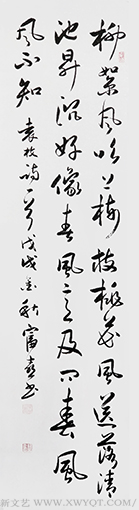 柳絮风吹上树枝桃花风送落清
池升沉好像春风意及问春风
风不知 袁枚诗一首 戊戌金秋富春书
新文艺 WWW.XWYQT.COM